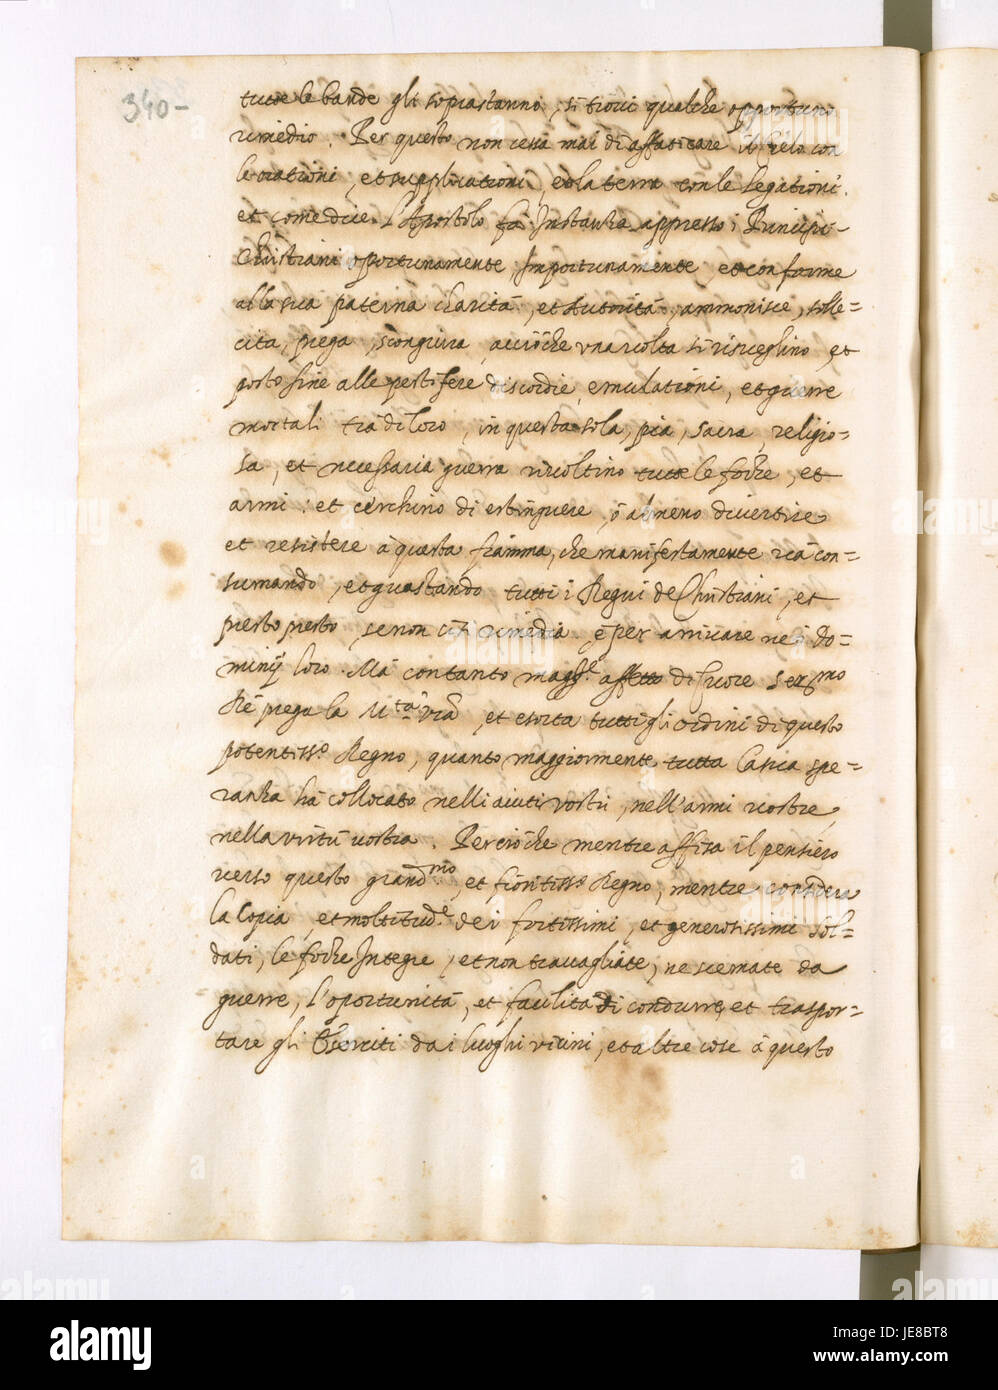 340-
tutte le bande gli soprastanno, si trovi qualche opportuno
rimedio. Per questo non cessa mai di affaticare il Cielo con
le orationi, et supplicationi, et la terra con le Legationi.
et come dice l'Apostolo fà Instanza appresso i Principi
Christiani opportunamente, Importunamente, et conforme
alla sua paterna charità, et Autorità, ammonisce, solle=
cita, prega, scongiura, acciòche una volta si risveglino, et
posto fine alle pestifere discordie, emulationi, et guerre
mortali trà di loro, in questa sola, pia, sacra, religio=
sa, et necessaria guerra rivoltino tutte le forze, et
armi: et cerchino di estinguere, ò almeno divertire
et resistere à questa fiamma, che manifestamente và con=
sumando, et guastando tutti i Regni de Christiani, et
presto presto, se non si rimedia, è per arrivare ne i Do=
minij loro. Mà con tanto magg.re affetto di cuore Ser.mo
Rè prega la S.tà V.ra, et esorta tutti gli ordini di questo
potentiss.o Regno, quanto maggiormente tutta la sua spe=
ranza hà collocato nelli aiuti vostri, nell'armi vostre,
nella virtù vostra. Percioche mentre affisa il pensiero
verso questo grand.mo, et fioritiss.o Regno, mentre considera
la Copia, et moltitud.e dei fortissimi, et generosissimi Sol=
dati, le forze Integre, et non travagliate, ne scemate da
guerre, l'oportunità, et facilità di condurre, et traspor=
tare gli Eserciti da i luoghi vicini, et altre cose à questo
alamy
alamy
Image ID: JE8BT8
www.alamy.com